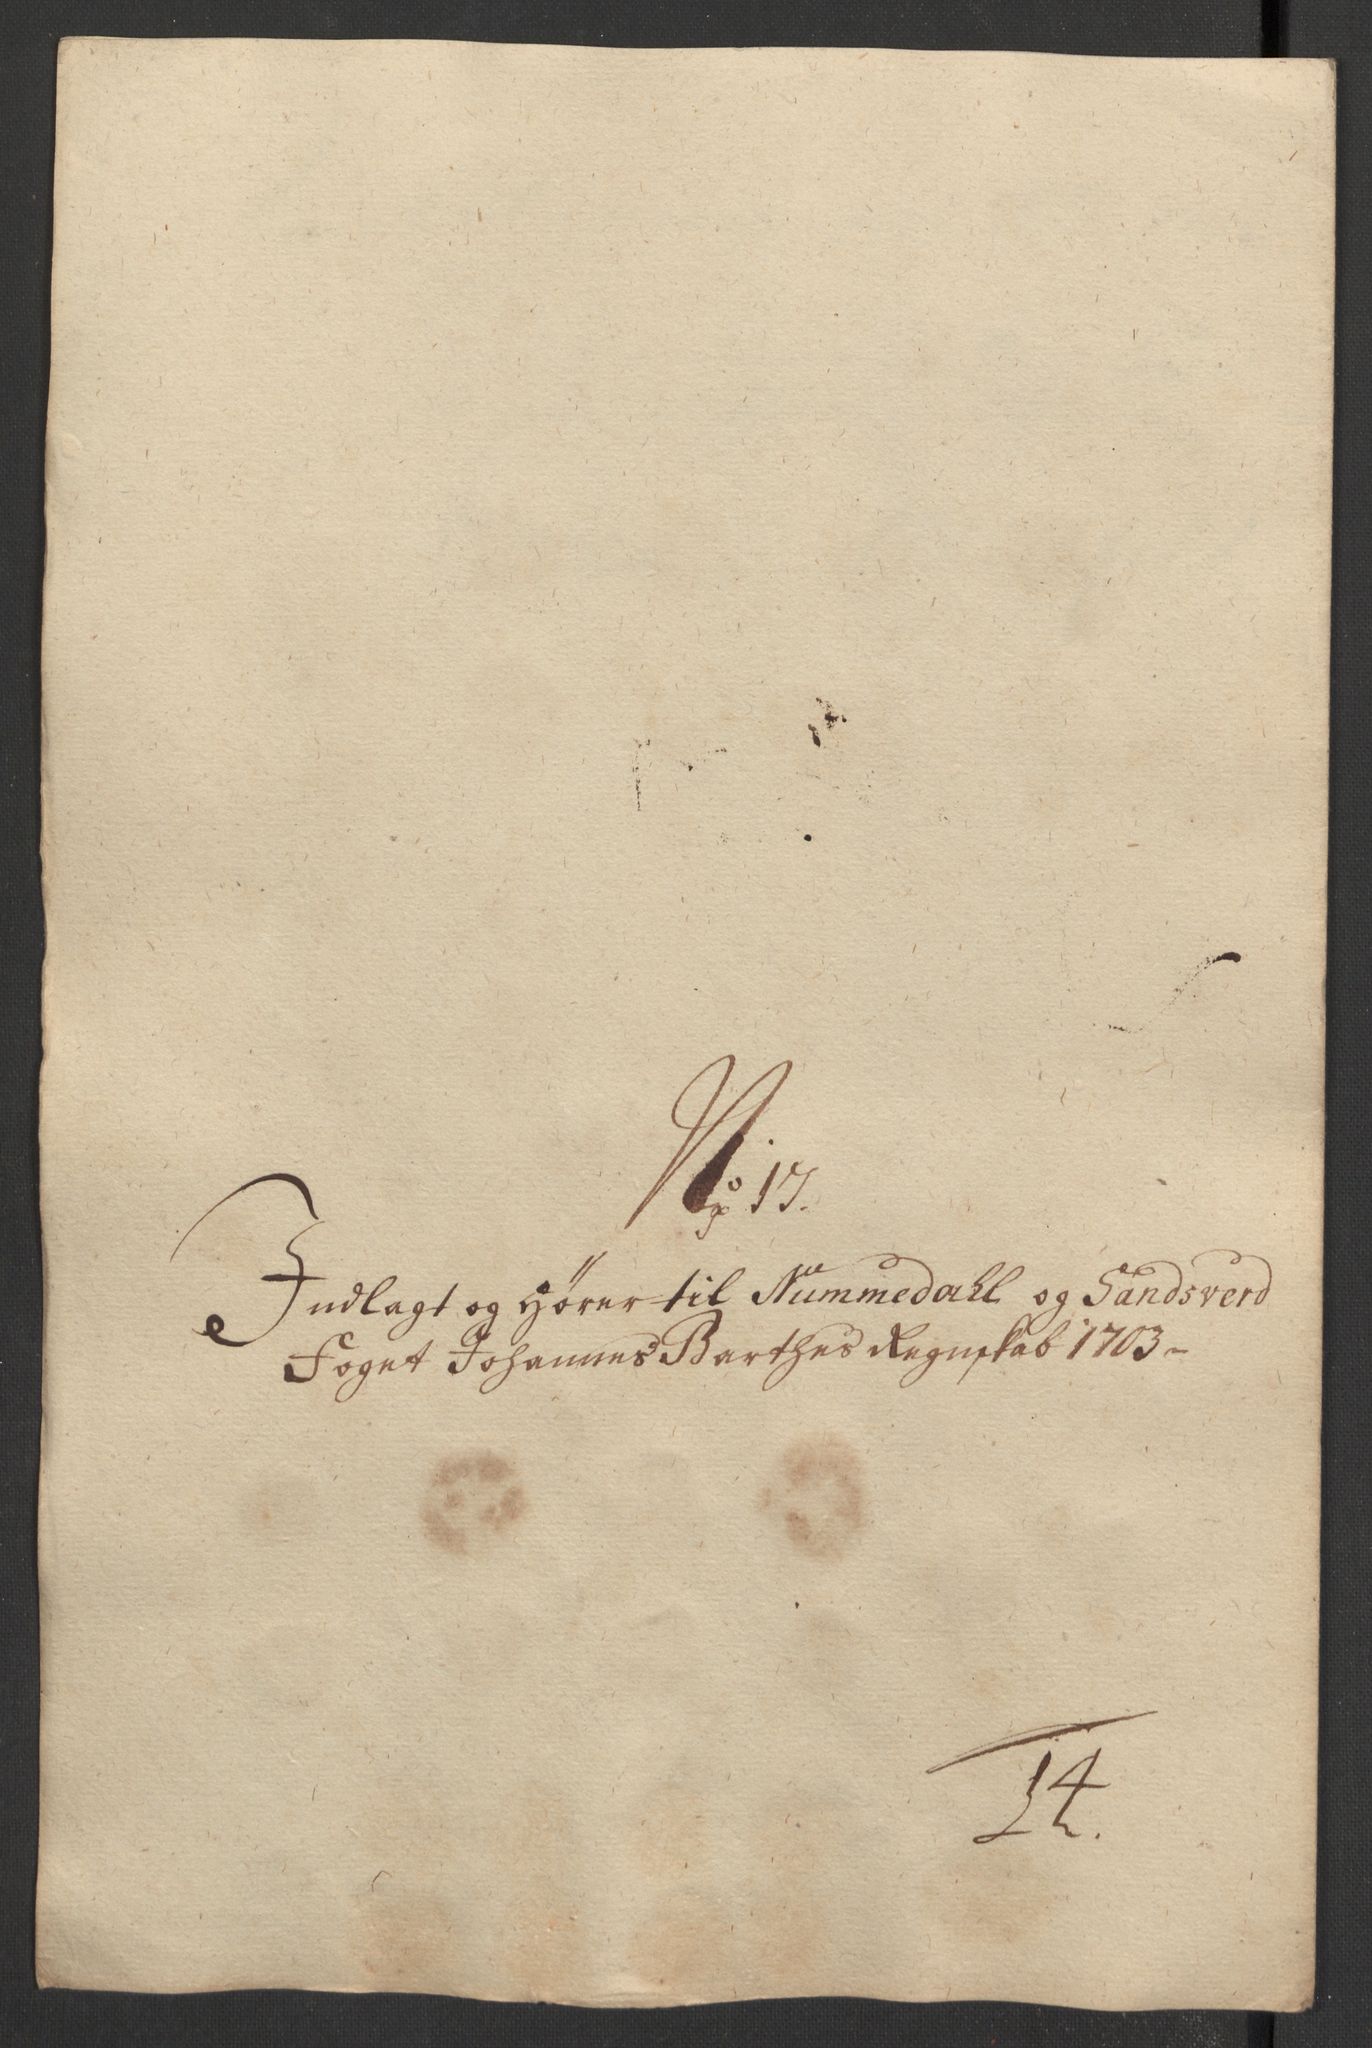 No 17.
Indlagt og hører til Nummedahl og Sandsverd
Foget Johannes Barthes Regnskab 1703
14.